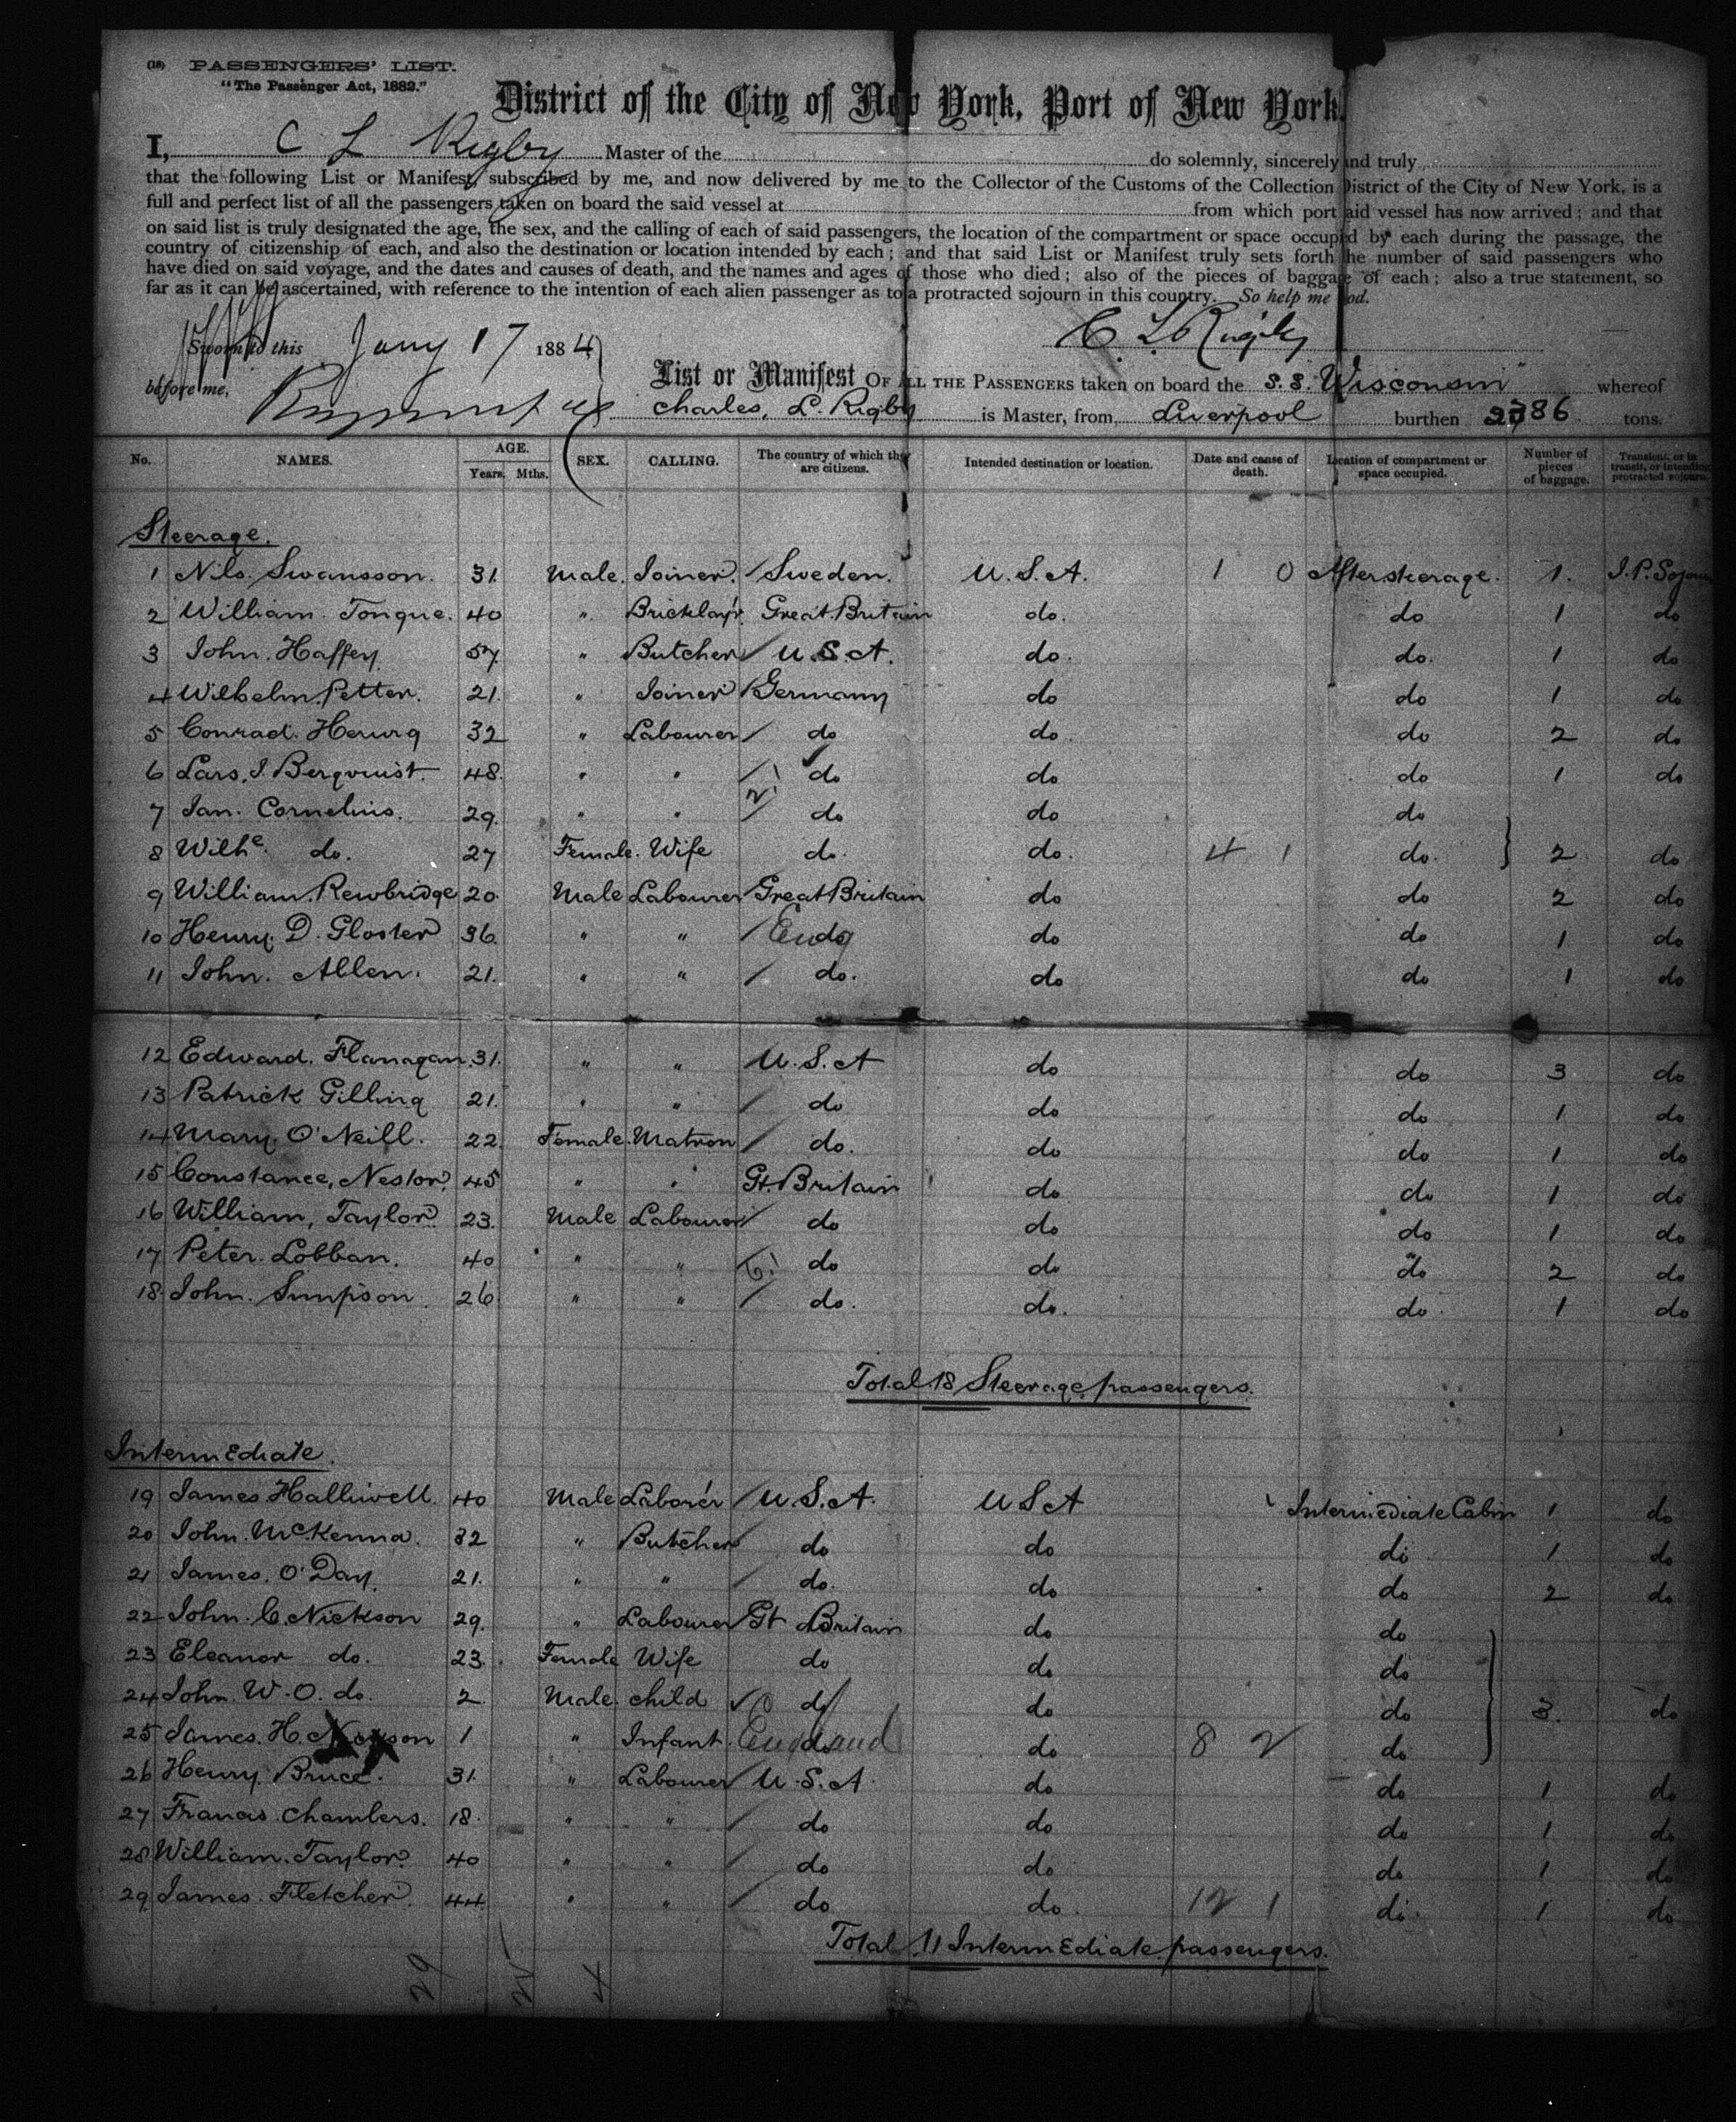 (18) PASSENGERS' LIST.
"The Passenger Act, 1882."
District of the City of New York, Port of New York.
I, C L Rigby Master of the do solemnly, sincerely and truly
that the following List or Manifest, subscribed by me, and now delivered by me to the Collector of the Customs of the Collection District of the City of New York, is a
full and perfect list of all the passengers taken on board the said vessel at from which port said vessel has now arrived; and that
on said list is truly designated the age, the sex, and the calling of each of said passengers, the location of the compartment or space occupied by each during the passage, the
country of citizenship of each, and also the destination or location intended by each; and that said List or Manifest truly sets forth the number of said passengers who
have died on said voyage, and the dates and causes of death, and the names and ages of those who died; also of the pieces of baggage of each; also a true statement, so
far as it can be ascertained, with reference to the intention of each alien passenger as to a protracted sojourn in this country. So help me God.
Sworn to this Jany 17 1884 C. L. Rigby
before me,
List or Manifest OF ALL THE PASSENGERS taken on board the S.S. Wisconsin whereof
Charles, L. Rigby is Master, from Liverpool burthen 86 tons.
No. NAMES. AGE. Years. Mths. SEX. CALLING. The country of which they are citizens. Intended destination or location. Date and cause of death. Location of compartment or space occupied. Number of pieces of baggage. Transient, or in transit, or intending protracted sojourn.
Steerage.
1 Nils. Swansson. 31. Male. Joiner. Sweden. U.S.A. 1 0 Aftersteerage. 1. I.P. Sojourn
2 William. Tongue. 40 " Bricklay'r Great Britain do. do 1 do
3 John. Haffey 57. " Butcher U.S.A. do. do. 1 do
4 Wilhelm. Petter. 21. " Joiner Germany do do 1 do
5 Conrad. Herwig 32 " Labourer do do. do 2 do
6 Lars. J. Berqvuist. 48. " " do do do 1 do
7 Jan. Cornelius. 29. " " do do do
8 Wilhe. do. 27 Female. Wife do. do. 4 1 do. 2 do
9 William. Rewbridge 20. Male Labourer Great Britain do do 2 do
10 Henry. D. Gloster 36. " " Eng do do do 1 do
11 John. Allen. 21. " " do. do do 1 do
12 Edward. Flanagan. 31. " " U.S.A do do 3 do
13 Patrick Gilling 21. " " do do do 1 do
14 Mary. O'Neill. 22 Female. Matron do. do do 1 do
15 Constance, Nestor. 45 " " Gt. Britain do do 1 do
16 William, Taylor. 23. Male Labourer do do do 1 do
17 Peter. Lobban. 40 " " 6 do do do 2 do
18 John. Simpson. 26 " " do. do. do. 1 do
Total 18 Steerage passengers.
Intermediate.
19 James Halliwell. 40 Male Labor'er U.S.A. U S A Intermediate Cabin 1 do
20 John. McKenna. 32 " Butcher do do do 1 do
21 James. O'Day. 21. " " do. do do 2 do
22 John. C. Nickson 29. " Labourer Gt Britain do do
23 Eleanor do. 23. Female Wife do do do
24 John. W. O. do. 2. Male. child do do do 3. do
25 James. H. Nickson 1 " Infant England do do 8 2 do
26 Henry. Bruce. 31. " Labourer U.S.A. do do 1 do
27 Francis. Chambers. 18. " " do do do 1 do
28 William. Taylor. 40 " " do do do 1 do
29 James. Fletcher. 44 " " do do. 12 1 do. 1 do
Total 11 Intermediate passengers.
29 4